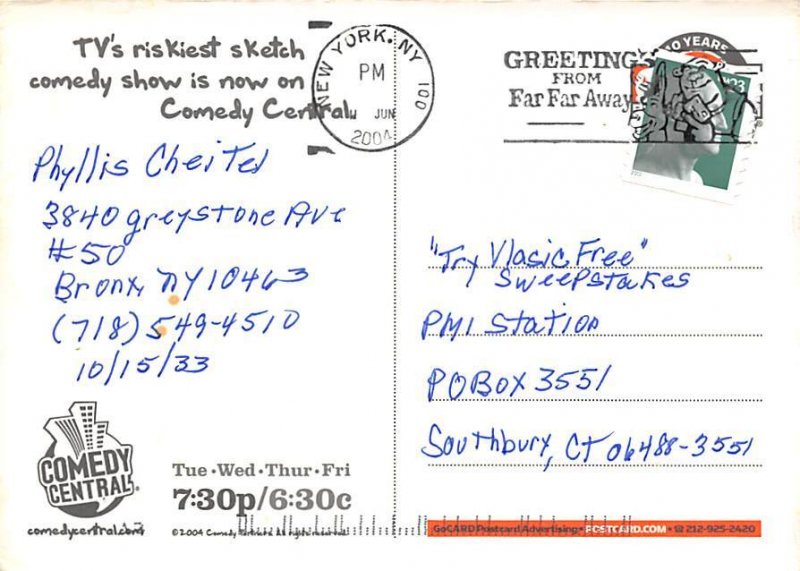 TV's riskiest sketch
comedy show is now on
Comedy Central.
NEW YORK, NY 100
PM
JUN
2004
GREETINGS
FROM
Far Far Away
10 YEARS
Phyllis Cheitel
3840 greystone Ave
#50
Bronx, NY 10463
(718) 549-4510
10/15/33
"Try Vlasic Free"
Sweepstakes
PMI Station
PO Box 3551
Southbury, CT 06488-3551
COMEDY
CENTRAL
comedycentral.com
Tue • Wed • Thur • Fri
7:30p/6:30c
©2004 Comedy Partners. All rights reserved.
GoCARD Postcard Advertising • POSTCARD.COM • ☎ 212-925-2420